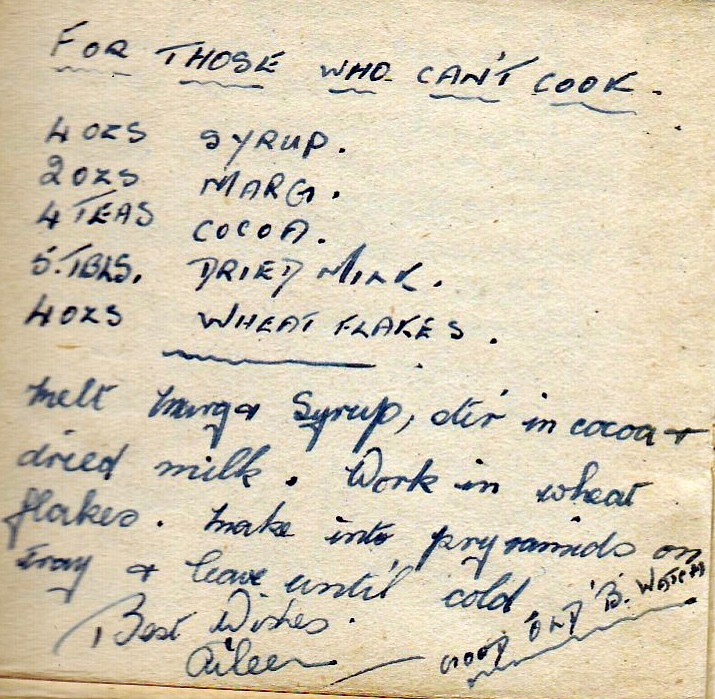 FOR THOSE WHO CAN'T COOK.
4 OZS SYRUP.
2 OZS MARG.
4 TEAS COCOA.
5. TBLS. DRIED MILK.
4 OZS WHEAT FLAKES.
Melt marg & Syrup, stir in cocoa +
dried milk. Work in wheat
flakes. Make into pryramids on
tray & leave until cold
Best Wishes.
Aileen
GOOD OLD 'B. WATCH